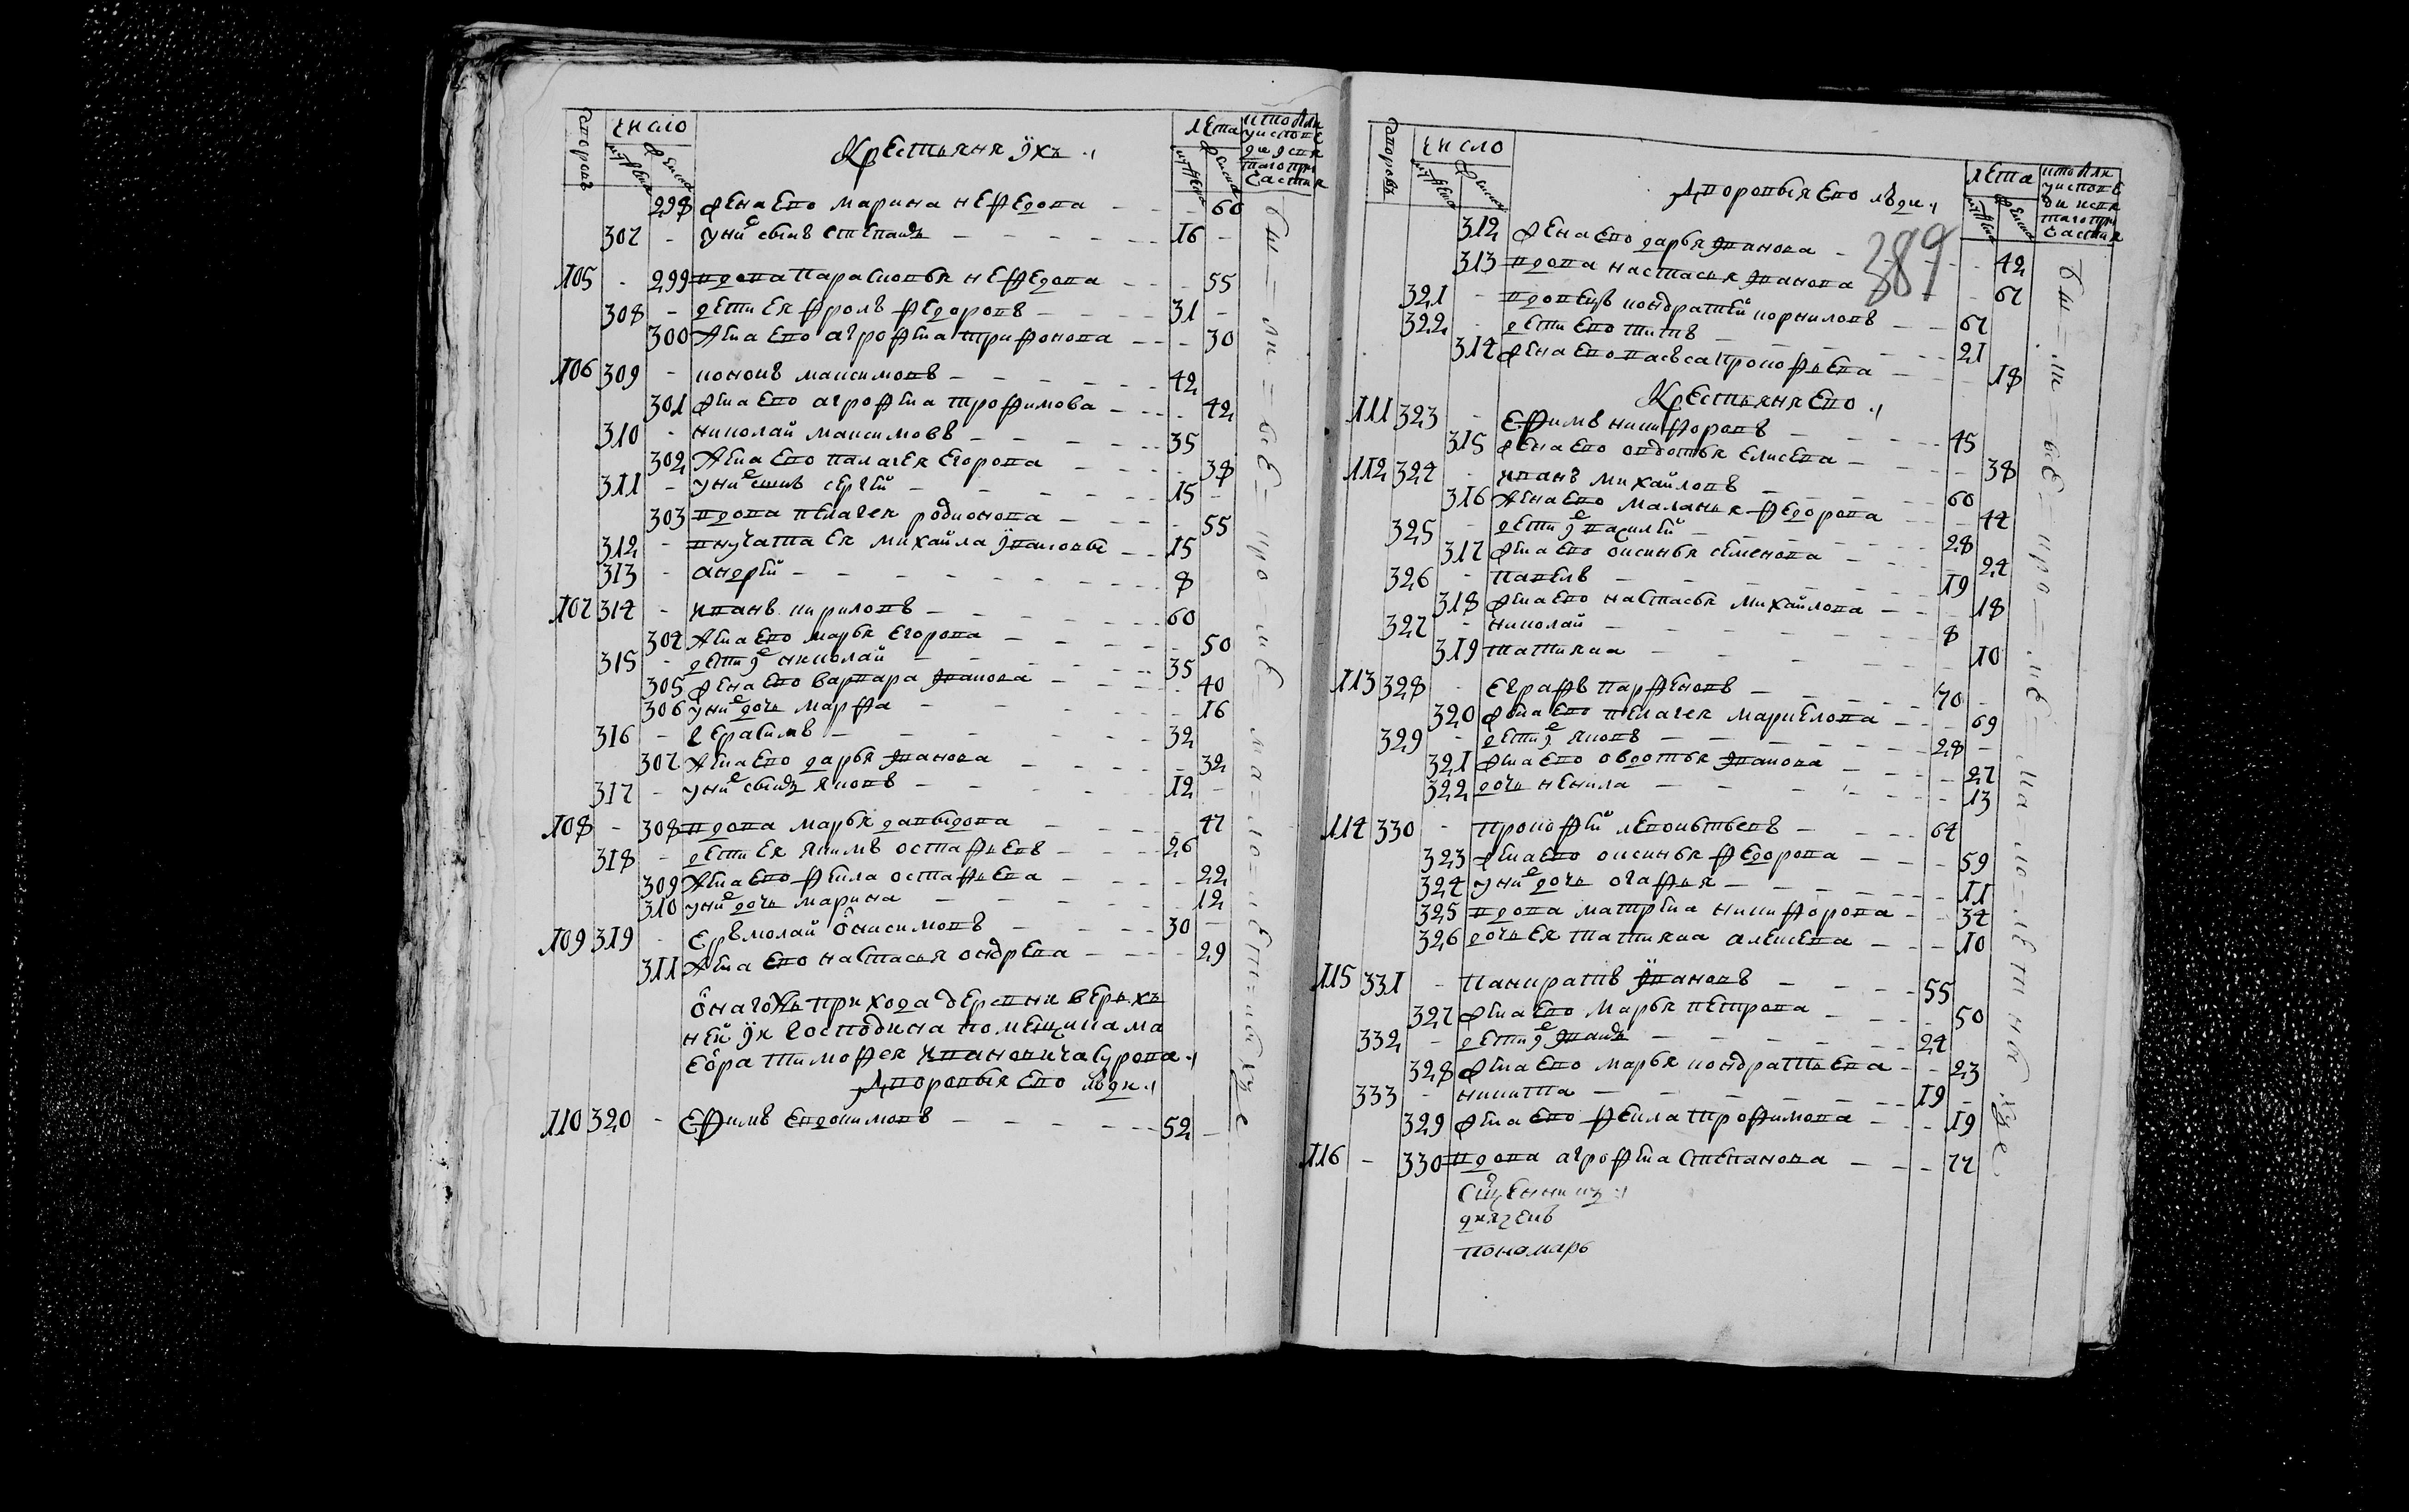 дворовъ число лѣта
мужеска женска мужеска женска
Крестьяня ихъ
298 жена ево марина нефедова 60
307 у них сынъ степанъ 16
105 299 вдова парасковья нефедова 55
308 дети ея фролъ федоровъ 31
300 жена ево агрофена трифонова 30
106 309 кононъ максимовъ 42
301 жена ево агрофена трофимова 42
310 николай максимовъ 35
302 жена ево палагея егорова 38
311 у них сынъ сергей 15
303 вдова пелагея родионова 55
312 внучата ея михайла
15
313 андрей 8
107 314 иванъ кириловъ 60
304 жена ево марья егорова 50
315 дети их николай 35
305 жена ево варвара иванова 40
306 у них дочь марфа 16
316 герасимъ 32
307 жена ево дарья иванова 32
317 у них сынъ яковъ 12
108 308 вдова марья давыдова 47
318 дети ея якимъ остафьевъ 26
309 жена ево фекла остафьева 22
310 у них дочь марина 12
109 319 ермолай онисимовъ 30
311 жена ево настасья ондреева 29
онагожъ прихода деревни верьхъ
ней
господина помещика ма
еора тимофея ивановича сурова
Дворовыя ево люди
110 320 ефимъ евдокимовъ 52
дворовъ число лѣта
мужеска женска мужеска женска
Дворовыя ево люди
389
312 жена ево дарья иванова 42
313 вдова настасья иванова 67
321 вдовецъ кондратей корниловъ 67
322 дети ево титъ 21
314 жена ево
прокофьева 18
Крестьяня ево
111 323 ефимъ никифоровъ 45
315 жена ево овдотья елисеева 38
112 324 иванъ михайловъ 60
316 жена ево маланья федорова 44
325 дети их василей 28
317 жена ево аксинья семенова 24
326 павелъ 19
318 жена ево настасья михайлова 18
327 николай 8
319 татияна 10
113 328 еграфъ парфеновъ 70
320 жена ево пелагея маркелова 69
329 дети их яковъ 28
321 жена ево овдотья иванова 27
322 дочь ненила 13
114 330 прокофей леонтьевъ 64
323 жена ево оксинья федорова 59
324 у них дочь огафья 11
325 вдова матрена никифорова 34
326 дочь ея татияна алексеева 10
115 331 панкратъ ивановъ 55
327 жена ево марья петрова 50
332 дети их иванъ 24
328 жена ево марья кондратьева 23
333 никита 19
329 жена ево фекла трофимова 19
116 330 вдова агрофена степанова 77
священникъ
дьячекъ
пономарь